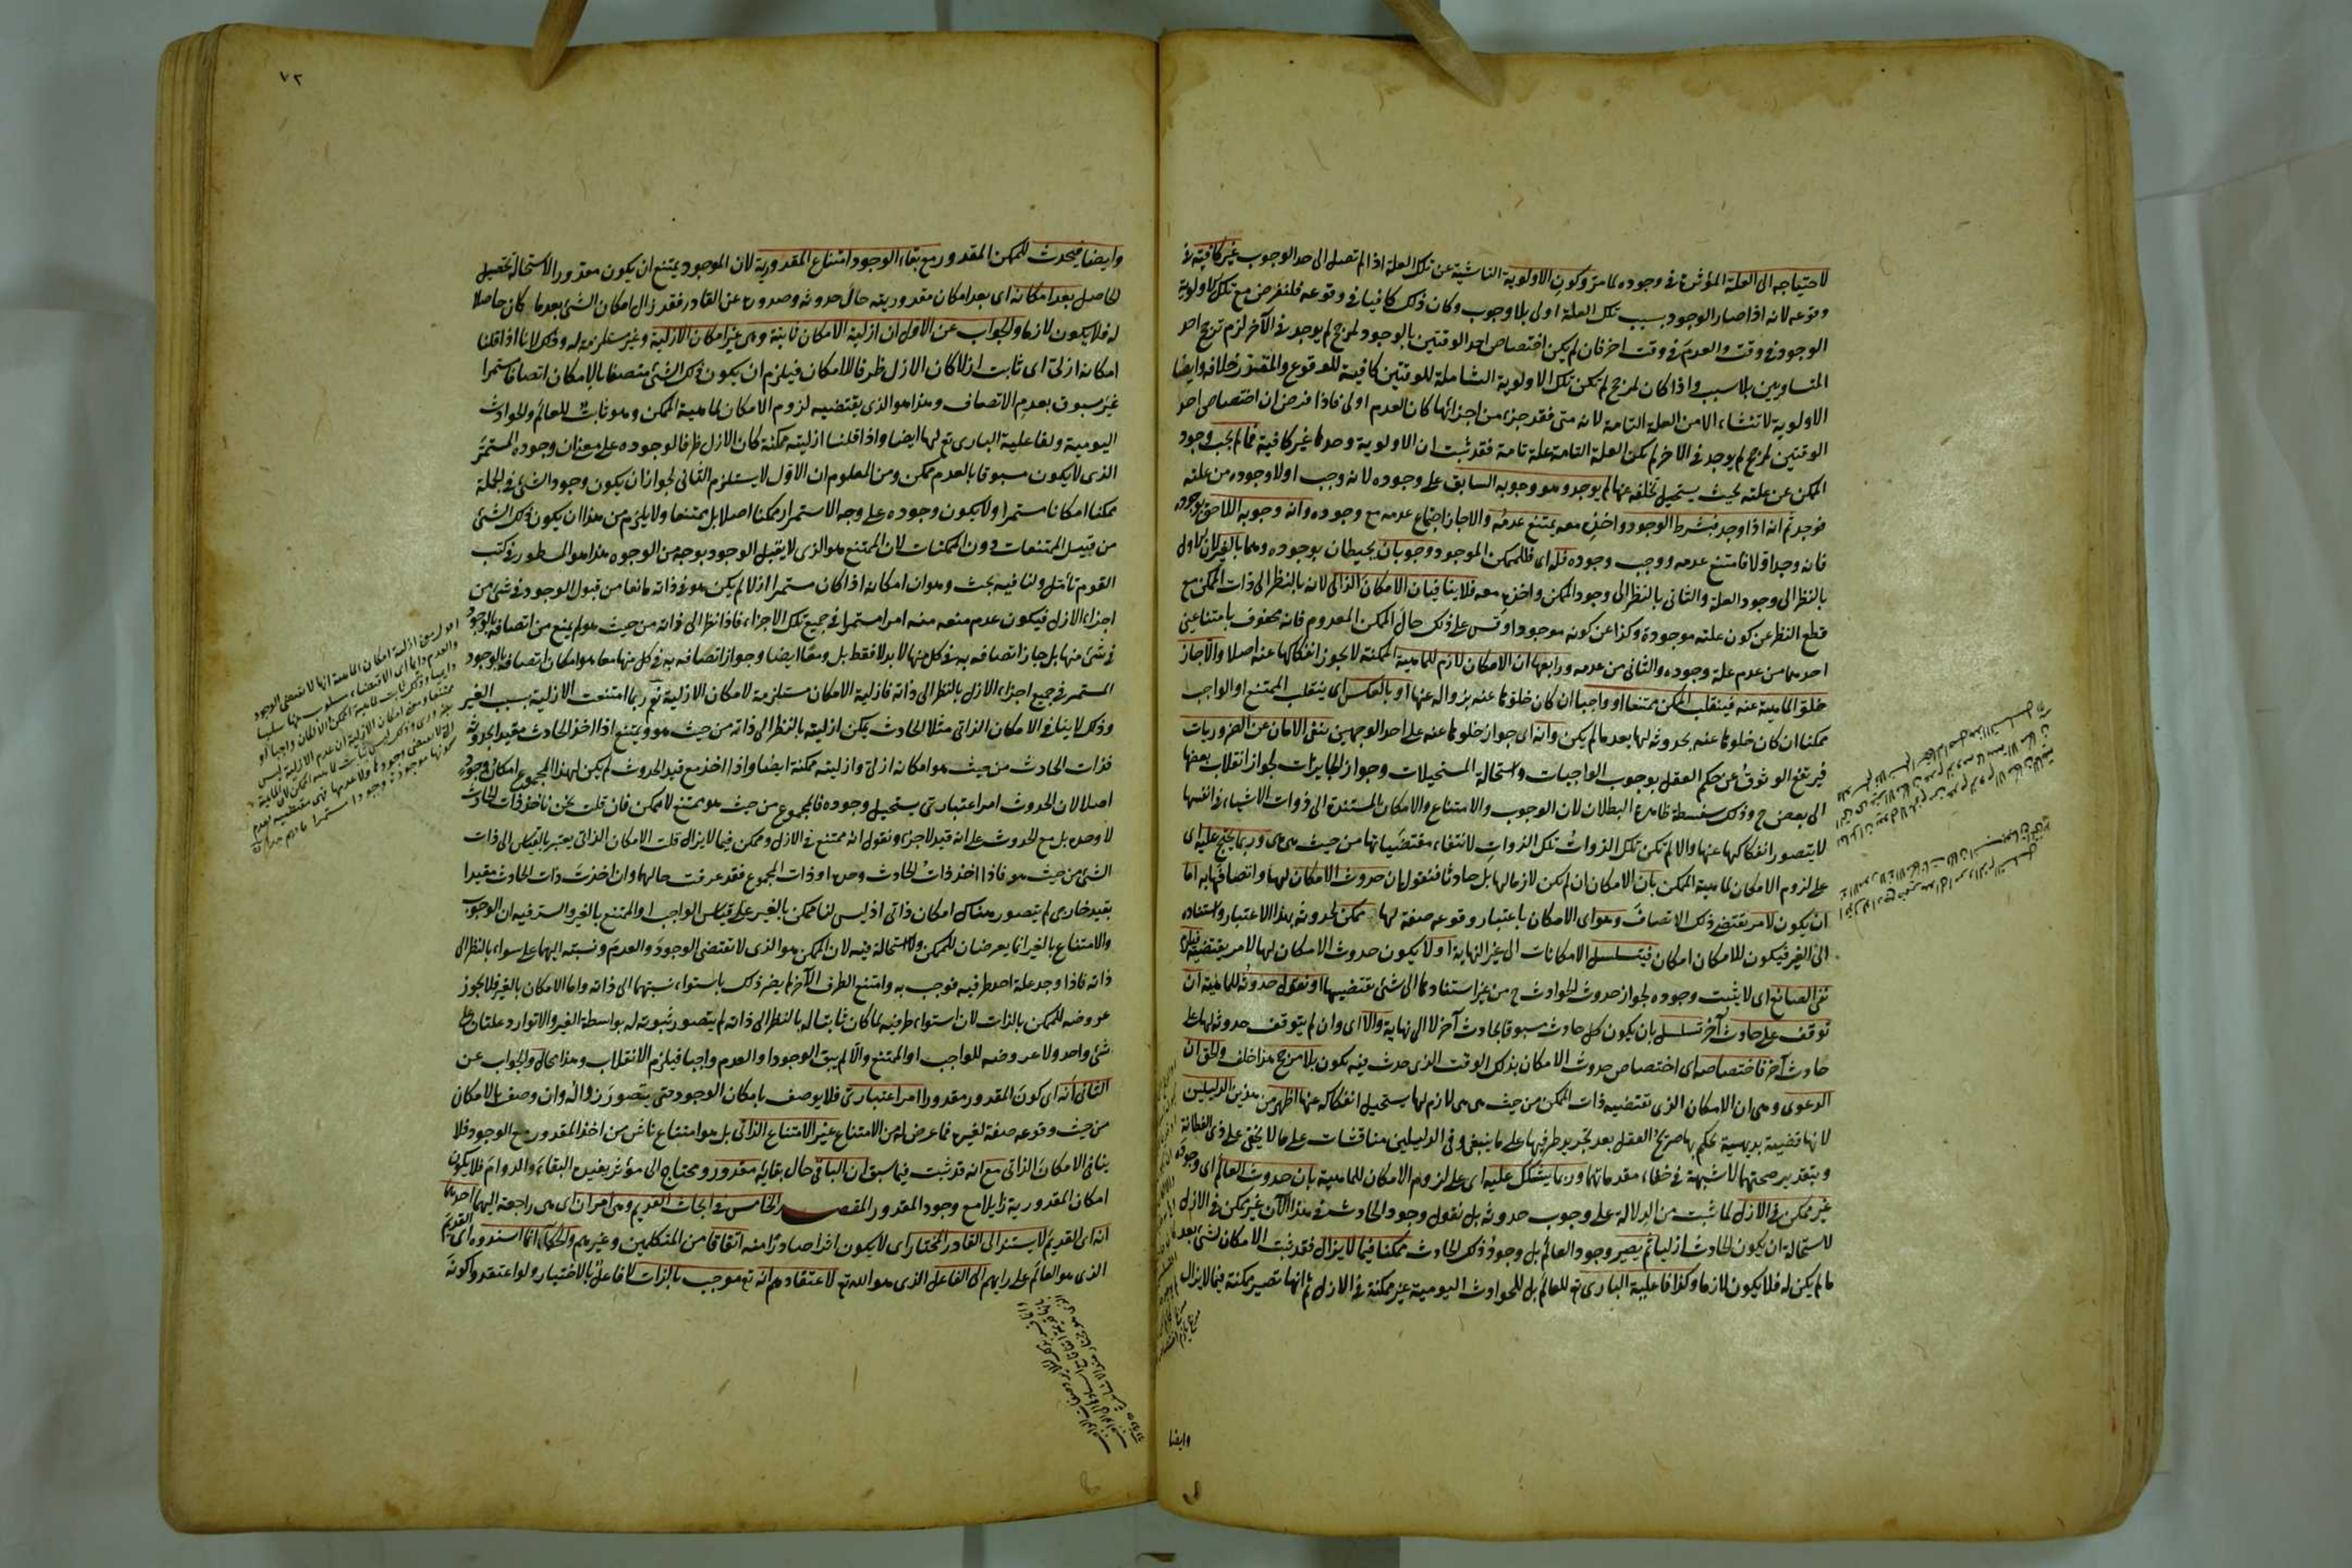 لاحتياجه الى العلة المؤثرة فى وجوده لما مر وكون الاولوية الناشية عن تلك العلة اذا لم تصل الى حد الوجوب غير كافية فى
وقوعه لانه اذا صار الوجود بسبب تلك العلة اولى بلا وجوب وكان ذلك كافيا فى وقوعه فلنفرض مع تلك الاولوية
الوجود فى وقت والعدم فى وقت اخر فان لم يكن اختصاص احد الوقتين بالوجود لمرجح لم يوجد فى الآخر لزم ترجح احد
المتساويين بلا سبب واذا كان لمرجح لم تكن تلك الاولوية الشاملة للوقتين كافية للوقوع والمقدر خلافه وايضا
الاولوية لا تنشاء الا من العلة التامة لانه متى فقد جزء من اجزائها كان العدم اولى فاذا فرض ان اختصاص احد
الوقتين لمرجح لم يوجد فى الآخر لم يكن العلة التامة علة تامة فقد ثبت ان الاولوية وحدها غير كافية فما لم يجب وجود
الممكن عن علته بحيث يستحيل تخلفه عنها لم يوجد وهو وجوبه السابق على وجوده لانه وجب اولا وجوده من علته
فوجد ثم انه اذا وجد فبشرط الوجود واخذه معه يمتنع عدمه والا جاز اجتماع عدمه مع وجوده وانه وجوبه اللاحق بوجوده
فانه وجد اولا فامتنع عدمه ووجب وجوده فله اى فللممكن الموجود وجوبان يحيطان بوجوده وهما بالغير لان الاول
بالنظر الى وجود العلة والثانى بالنظر الى وجود الممكن واخذه معه فلا ينافيان الامكان الذاتى لانه بالنظر الى ذات الممكن مع
قطع النظر عن كون علته موجودة وكذا عن كونه موجودا وقس على ذلك حال الممكن المعدوم فانه محفوف بامتناعين
احدهما من عدم علة وجوده والثانى من عدمه ورابعها ان الامكان لازم للماهية الممكنة لا يجوز انفكاكها عنه اصلا والا جاز
خلو الماهية عنه فينقلب الممكن ممتنعا او واجبا ان كان خلوها عنه بزواله عنها او بالعكس اى ينقلب الممتنع او الواجب
ممكنا ان كان خلوها عنه بحدوثه لها بعد ما لم يكن وانه اى جواز خلوها عنه على احد الوجهين ينفى الامان عن الضروريات
فيرتفع الوثوق عن حكم العقل بوجوب الواجبات واستحالة المستحيلات وجواز الجايزات لجواز انقلاب بعضها
الى بعض ح وذلك سفسطة ظاهرة البطلان لان الوجوب والامتناع والامكان المستندة الى ذوات الاشياء فى انفسها
لا يتصور انفكاكها عنها والا لم تكن تلك الذوات تلك الذوات لانتفاء مقتضياتها من حيث هى هى وربما يحتج عليه اى
على لزوم الامكان لماهية الممكن بان الامكان ان لم يكن لازما لها بل حادثا فنقول ان حدوث الامكان لها واتصافها به اما
ان يكون لامر يقتضى ذلك الاتصاف وهو اى الامكان باعتبار وقوعه صفة لها ممكن لحدوثه بهذا الاعتبار واستناده
الى الغير فيكون للامكان امكان فيتسلسل الامكانات الى غير النهاية او لا يكون حدوث الامكان لها لامر يقتضيه فيلزم
نفى الصانع اى لا يثبت وجوده لجواز حدوث الحوادث ح من غير استنادها الى شئ تقتضيها او نقول حدوثه للماهية ان
توقف على حادث آخر تسلسل بان يكون كل حادث مسبوقا بحادث آخر لا الى نهاية والا اى وان لم يتوقف حدوثه لها على
حادث آخر فاختصاصه اى اختصاص حدوث الامكان بذلك الوقت الذى حدث فيه يكون بلا مرجح هذا خلف والحق ان
الدعوى وهى ان الامكان الذى تقتضيه ذات الممكن من حيث هى هى لازم لها يستحيل انفكاكه عنها اظهر من هذين الدليلين
لانها قضية بديهية يحكم بها صريح العقل بعد تجريد طرفيها على ما ينبغى وفى الدليلين مناقشات على ما لا يخفى على ذى الفطانة
وبتقدير صحتهما لا شبهة فى خفاء مقدماتهما وربما يشكك عليه اى على لزوم الامكان للماهية بان حدوث العالم اى وجوده
غير ممكن فى الازل لما ثبت من الدلالة على وجوب حدوثه بل نقول وجود الحادث فى هذا الآن غير ممكن فى الازل
لاستحالة ان يكون الحادث ازليا ثم يصير وجود العالم بل وجود ذلك الحادث ممكنا فيما لا يزال فقد ثبت الامكان لشئ بعد
ما لم يكن له فلا يكون لازما وكذا فاعلية البارى تع للعالم بل للحوادث اليومية غير ممكنة فى الازل ثم انها تصير ممكنة فيما لا يزال
وايضا
٧٢
وايضا فيحدث للممكن المقدور مع بقاء الوجود امتناع المقدورية لان الموجود يمتنع ان يكون مقدورا لاستحالة تحصيل
الحاصل بعد امكانه اى بعد امكان مقدوريته حال حدوثه وصدوره عن القادر فقد زال امكان الشئ بعد ما كان حاصلا
له فلا يكون لازما والجواب عن الاول ان ازلية الامكان ثابتة وهى غير امكان الازلية وغير مستلزمة له وذلك لانا اذا قلنا
امكانه ازلى اى ثابت ازلا كان الازل ظرفا للامكان فيلزم ان يكون ذلك الشئ متصفا بالامكان اتصافا مستمرا
غير مسبوق بعدم الاتصاف وهذا هو الذى يقتضيه لزوم الامكان لماهية الممكن وهو ثابت للعالم والحوادث
اليومية ولفاعلية البارى تع لها ايضا واذا قلنا ازليته ممكنة كان الازل ظرفا لوجوده على معنى ان وجوده المستمر
الذى لا يكون مسبوقا بالعدم ممكن ومن المعلوم ان الاول لا يستلزم الثانى لجواز ان يكون وجود الشئ فى الجملة
ممكنا امكانا مستمرا ولا يكون وجوده على وجه الاستمرار ممكنا اصلا بل ممتنعا ولا يلزم من هذا ان يكون ذلك الشئ
من قبيل الممتنعات دون الممكنات لان الممتنع هو الذى لا يقبل الوجود بوجه من الوجوه هذا هو المسطور فى كتب
القوم تأمل ولنا فيه بحث وهو ان امكانه اذا كان مستمرا ازلا لم يكن هو فى ذاته مانعا من قبول الوجود فى شئ من
اجزاء الازل فيكون عدم منعه منه امرا مستمرا فى جميع تلك الاجزاء فاذا نظر الى ذاته من حيث هو لم يمنع من اتصافه بالوجود
فى شئ منها بل جاز اتصافه به فى كل منها لا بدلا فقط بل ومعا ايضا وجواز اتصافه به فى كل منها معا هو امكان اتصافه بالوجود
المستمر فى جميع اجزاء الازل بالنظر الى ذاته فازلية الامكان مستلزمة لامكان الازلية نعم ربما امتنعت الازلية بسبب الغير
وذلك لا ينافى الامكان الذاتى مثلا الحادث يمكن ازليته بالنظر الى ذاته من حيث هو ويمتنع اذا اخذ الحادث مقيدا بحدوثه
فذات الحادث من حيث هو امكانه ازلى وازليته ممكنة ايضا واذا اخذ مع قيد الحدوث لم يكن لهذا المجموع امكان وجود
اصلا لان الحدوث امر اعتبارى يستحيل وجوده فالمجموع من حيث هو ممتنع لا ممكن فان قلت نحن ناخذ ذات الحادث
لا وحده بل مع الحدوث على انه قيد لا جزء ونقول انه ممتنع فى الازل وممكن فيما لا يزال قلت الامكان الذاتى يعتبر بالقياس الى ذات
الشئ من حيث هو فاذا اخذ ذات الحادث وحده او ذات المجموع فقد عرفت حالهما وان اخذت ذات الحادث مقيدا
بقيد خارجى لم يتصور هناك امكان ذاتى اذ ليس لنا ممكن بالغير على قياس الواجب والممتنع بالغير والسر فيه ان الوجوب
والامتناع بالغير انما يعرضان للممكن ولا استحالة فيه لان الممكن هو الذى لا تقتضى الوجود والعدم ونسبته اليهما على سواء بالنظر الى
ذاته فاذا وجد علة احد طرفيه فوجب به وامتنع الطرف الآخر لم يضر ذلك باستواء نسبتهما الى ذاته واما الامكان بالغير فلا يجوز
عروضه للممكن بالذات لان استواء طرفيه لما كان ثابتا له بالنظر الى ذاته لم يتصور ثبوته له بواسطة الغير والا توارد علتان على
شئ واحد ولا عروضه للواجب او الممتنع والا لم يبق الوجود او العدم واجبا فيلزم الانقلاب وهذا محال والجواب عن
الثانى انه اى كون المقدور مقدورا امر اعتبارى فلا يوصف بامكان الوجود حتى يتصور زواله وان وصف بالامكان
من حيث وقوعه صفة لغيره فما عرض له من الامتناع غير الامتناع الذاتى بل هو امتناع ناش من اخذ المقدور مع الوجود فلا
ينافى الامكان الذاتى مع انه قد ثبت فيما سبق ان الباقى حال بقايه مقدور ومحتاج الى مؤثر يفيده البقاء والدوام فلا يكون
امكان المقدورية زايلا مع وجود المقدور المقصد الخامس فى ابحاث القديم وهى امران اى هى راجعة اليهما احدهما
انه اى القديم لا يستند الى القادر المختار اى لا يكون اثرا صادرا منه اتفاقا من المتكلمين وغيرهم والحكماء انما اسندوه اى القديم
الذى هو العالم على رايهم الى الفاعل الذى هو الله تع لاعتقادهم انه تع موجب بالذات لا فاعل بالاختيار ولو اعتقدوا كونه